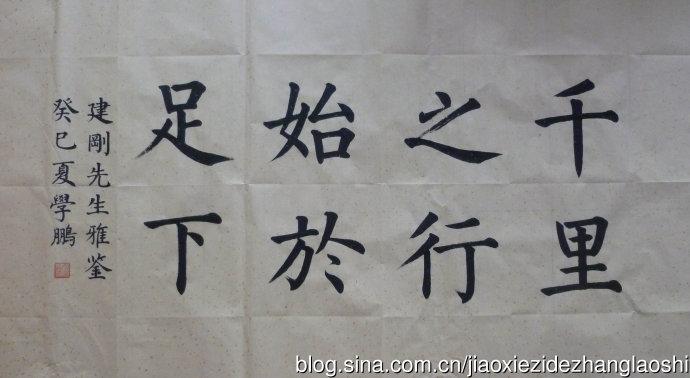 千里
之行
始於
足下
建剛先生雅鉴
癸巳夏學鵬
blog.sina.com.cn/jiaoxiezidezhanglaoshi